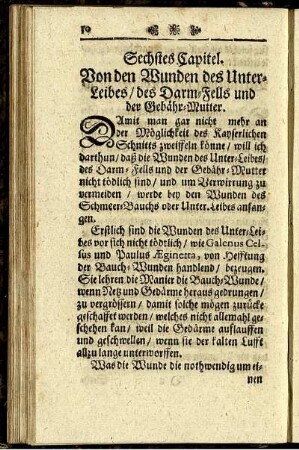 10
Sechstes Capitel.
Von den Wunden des Unter-
Leibes / des Darm-Fells und
der Gebähr-Mutter.
DAmit man gar nicht mehr an
der Möglichkeit des Kayserlichen
Schnitts zweiffeln könne / will ich
darthun / daß die Wunden des Unter-Leibes /
des Darm-Fells und der Gebähr-Mutter
nicht tödlich sind / und um Verwirrung zu
vermeiden / werde bey den Wunden des
Schmeer-Bauchs oder Unter-Leibes anfan-
gen.
Erstlich sind die Wunden des Unter-Lei-
bes vor sich nicht tödtlich / wie Galenus Cel-
sus und Paulus Æginetta, von Hefftung
der Bauch-Wunden handlend / bezeugen.
Sie lehren die Manier die Bauch-Wunde /
wenn Netz und Gedärme heraus gedrungen /
zu vergrössern / damit solche mögen zurücke
geschaffet werden / welches nicht allemahl ge-
schehen kan / weil die Gedärme aufflauffen
und geschwellen / wenn sie der kalten Lufft
allzu lange unterworffen.
Was die Wunde die nothwendig um ei-
nen